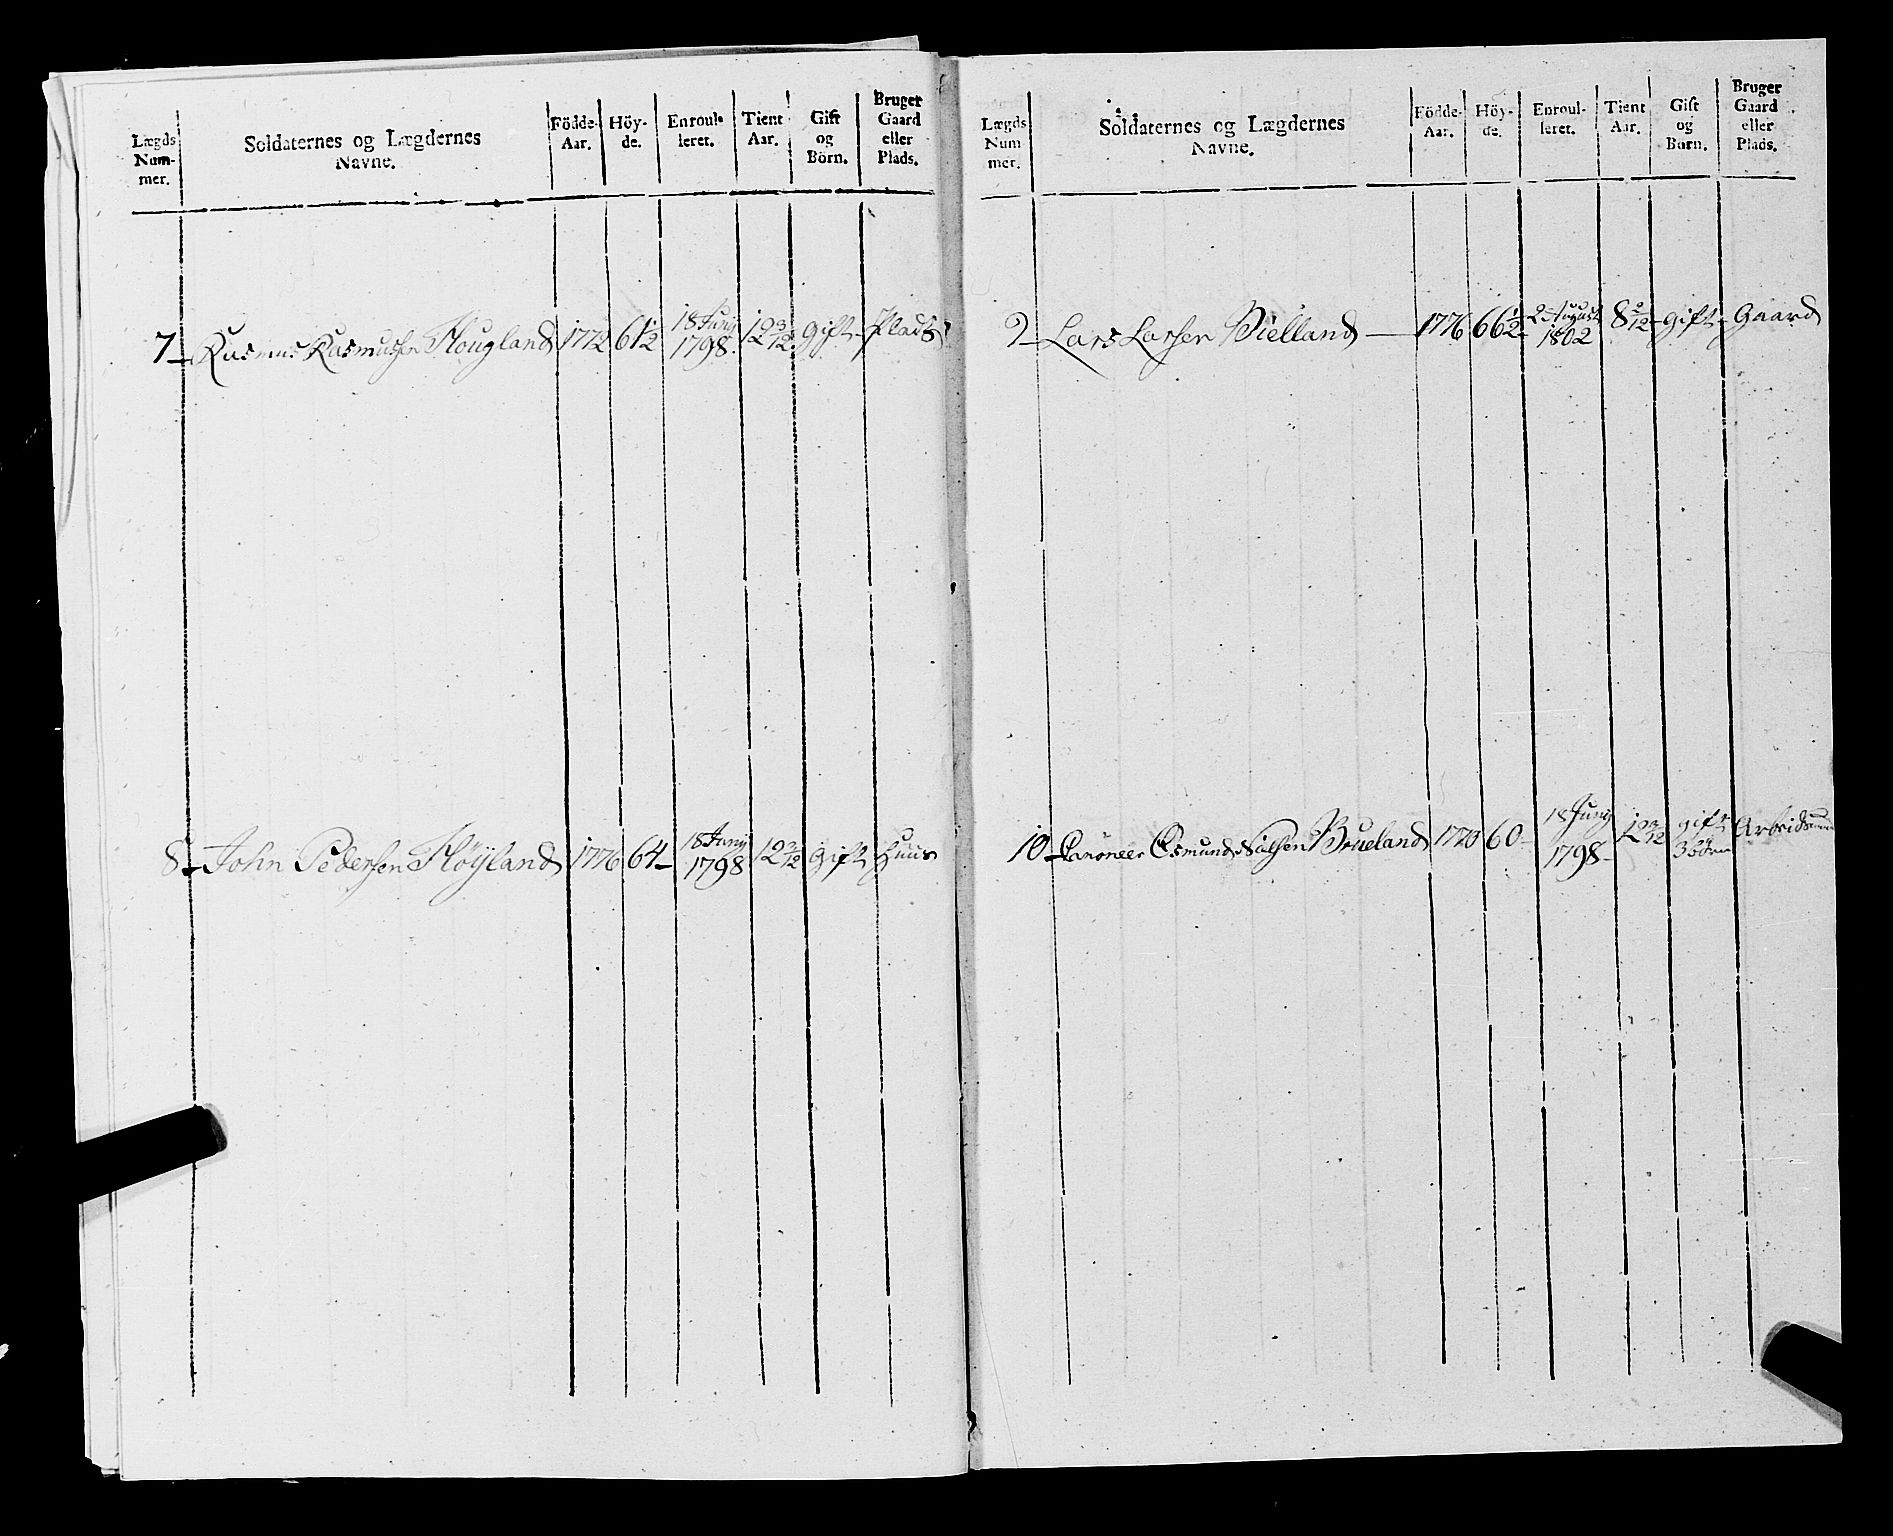 Lægds Num- mer.
Soldaternes og Lægdernes Navne.
Födde- Aar.
Höy- de.
Enroul- leret.
Tient Aar.
Gift og Börn.
Bruger Gaard eller Plads.
7 – Rasmus Rasmussen Hougland 1772 61½ 18 Juny 1798. 12 3/12 gift – Plads
8 – John Pedersen Höÿland 1776 64 – 18 Juny 1798 12 3/12 gift Huus
Lægds Num mer.
Soldaternes og Lægdernes Navne.
Födde- Aar.
Höy- de.
Enroul- leret.
Tient Aar.
Gift og Börn.
Bruger Gaard eller Plads.
9 – Lars Larsen Bielland — 1776 66½ – 2 August 1802 8 2/12 – gift – Gaard
10 – Osmund Nilsen Brueland 1770 60 – 18 Juny 1798 – 12 3/12 gift 3 börn